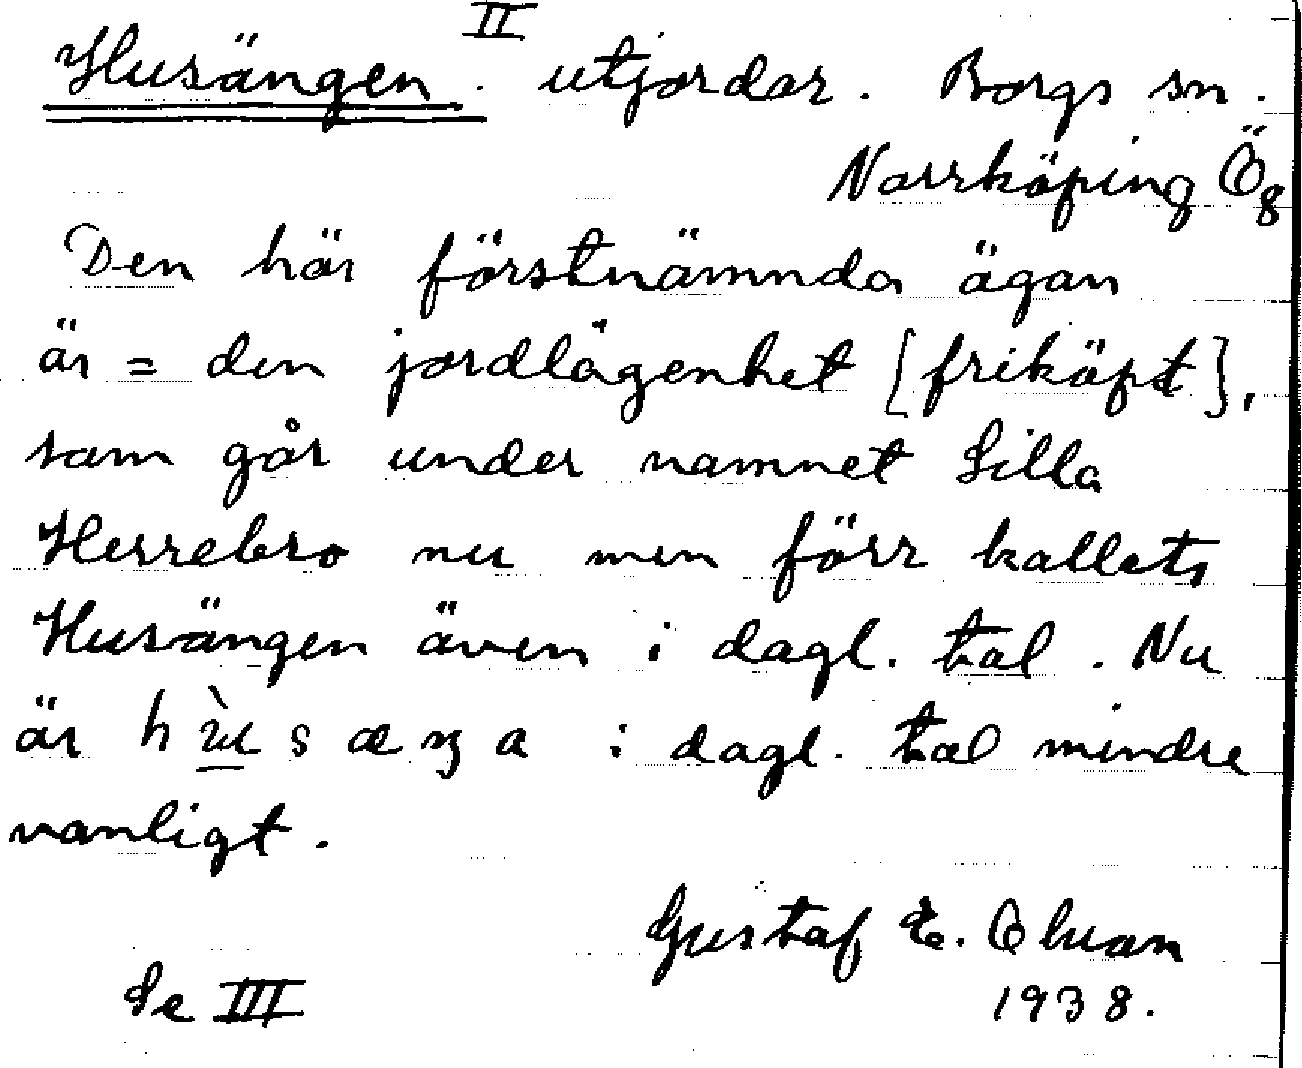 II
Husängen. utjordar. Borgs sn.
Norrköping Ög
Den här förstnämnda ägan
är = den jordlägenhet [friköpt],
som går under namnet Lilla
Herrebro nu men förr kallats
Husängen även i dagl. tal. Nu
är hùsæŋa i dagl. tal mindre
vanligt.
Gustaf E.
Se III 1938.